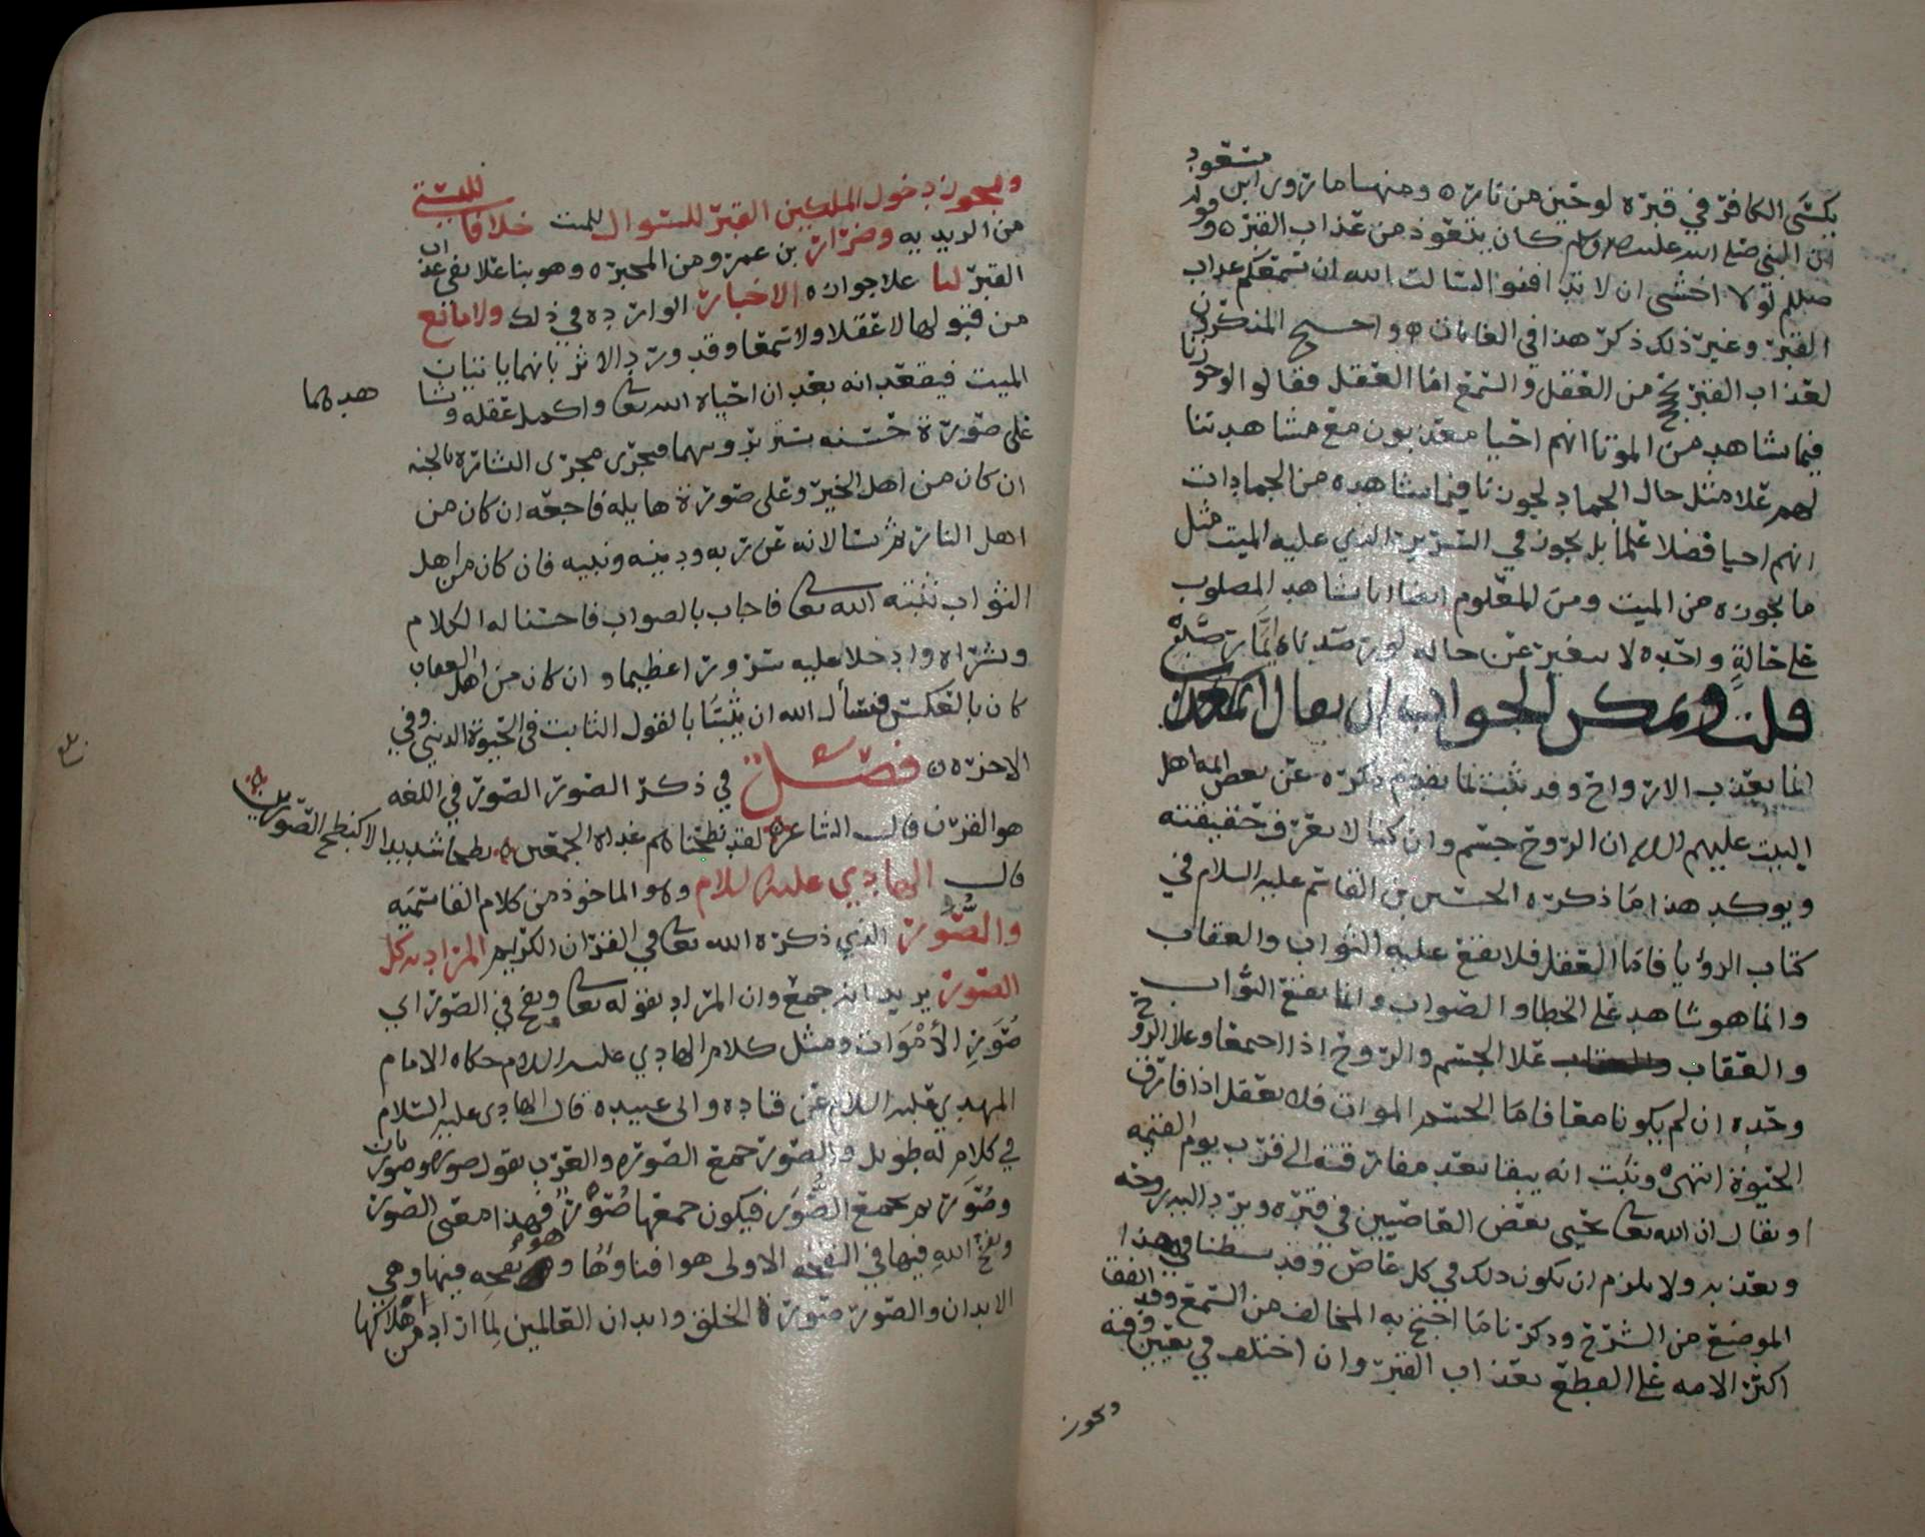 يكسى الكافر في قبره لوحين من نار ومنها ما روى ابن مسعود
ان النبي صلى الله عليه واله وسلم كان يتعوذ من عذاب القبر وقوله
صللم لولا اخشى ان لا تدافنوا لسالت الله ان يسمعكم عذاب
القبر وغير ذلك ذكر هذا في الغايات واحتج المنكرون
لعذاب القبر بحجج من العقل والسمع اما العقل فقالوا لو جوزنا
فيما نشاهد من الموتا انهم احيا معذبون مع مشاهدتنا
لهم علا مثل حال الجماد لجوزنا فيما نشاهده من الجمادات
انهم احيا فضلا علما بل نجوز في السرير الذي عليه الميت مثل
ما نجوزه من الميت ومن المعلوم ايضا انا نشاهد المصلوب
على حالة واحده لا يتغير عن حاله
قلت ويمكن الجواب ان يقال
انما يعذب الارواح وقد ثبت بما تقدم ذكره عن بعض ايمة اهل
البيت عليهم السلام ان الروح جسم وان كنا لا نعرف حقيقته
ويوكد هذا ما ذكره الحسين بن القاسم عليه السلام في
كتاب الرؤيا فاما العقل فلا يقع عليه الثواب والعقاب
وانما هو شاهد على الخطا والصواب وانما يقع الثواب
والعقاب علا الجسم والروح اذا اجتمعا وعلا الروح
وحده ان لم يكونا معا فاما الجسم الموات فلا يعقل اذا فارق
الحيوة انتهى وثبت انه يبقا بعد مفارقته الى قرب يوم القيمه
او يقال ان الله تعا يحيي بعض العاصيين في قبره ويرد اليه روحه
ويعذبه ولا يلزم ان يكون ذلك في كل عاص وقد بسطنا في هذا
الموضع من الشرح وذكرنا ما احتج به المخالف من السمع وقد اتفقا
اكثر الامه على القطع بعذاب القبر وان اختلف في تعيين وقته
ويجوز
ويجوز دخول الملكين القبر للسوال للميت خلافا للبستي
من الزيديه وضرار بن عمرو ومن المجبره وهو بنا علا نفي عذاب
القبر لنا علا جوازه الاخبار الوارده في ذلك ولا مانع
من قبولها لا عقلا ولا سمعا وقد ورد الاثر بانهما ياتيان
الميت فيقعدانه بعد ان احياه الله تعا واكمل عقله
هدهما
على صورة حسنه تجري مجرى البشاره بالجنه
ان كان من اهل الخير وعلى صورة هايله فاجعه ان كان من
اهل النار ثم يسالانه عن ربه ودينه ونبيه فان كان من اهل
الثواب ثبته الله تعا فاجاب بالصواب فاحسنا له الكلام
وبشراه وادخلا عليه سرورا عظيما وان كان من اهل العقاب
كان بالعكس فنسأل الله ان يثبتنا بالقول الثابت في الحيوة الدنيى وفي
الاخره فصل في ذكر الصور الصور في اللغه
هو القرن قال الشاعر لقد نطحناهم غداه الجمعين نطحا شديدا لا كنطح الصورين
قال الهادي عليه السلام وهو الماخوذ من كلام القاسميه
والصور الذي ذكره الله تعا في القران الكريم المراد به كل
الصور يريد انه جمع وان المراد بقوله تعا ونفخ في الصور اي
صور الأموات ومثل كلام الهادي عليه السلام حكاه الامام
المهدي عليه السلام عن قتاده وابي عبيده قال الهادي عليه السلام
في كلام له طويل والصور جمع الصوره والعرب تقول صوره وصورتان
وصور ثم تجمع الصور فيكون جمعها صور فهذا معنى الصور
ونفخ الله فيها في النفخه الاولى هو افناؤها ونفخه فيها وهي
الابدان والصور صورة الخلق وابدان العالمين لما اراد من هلاكها